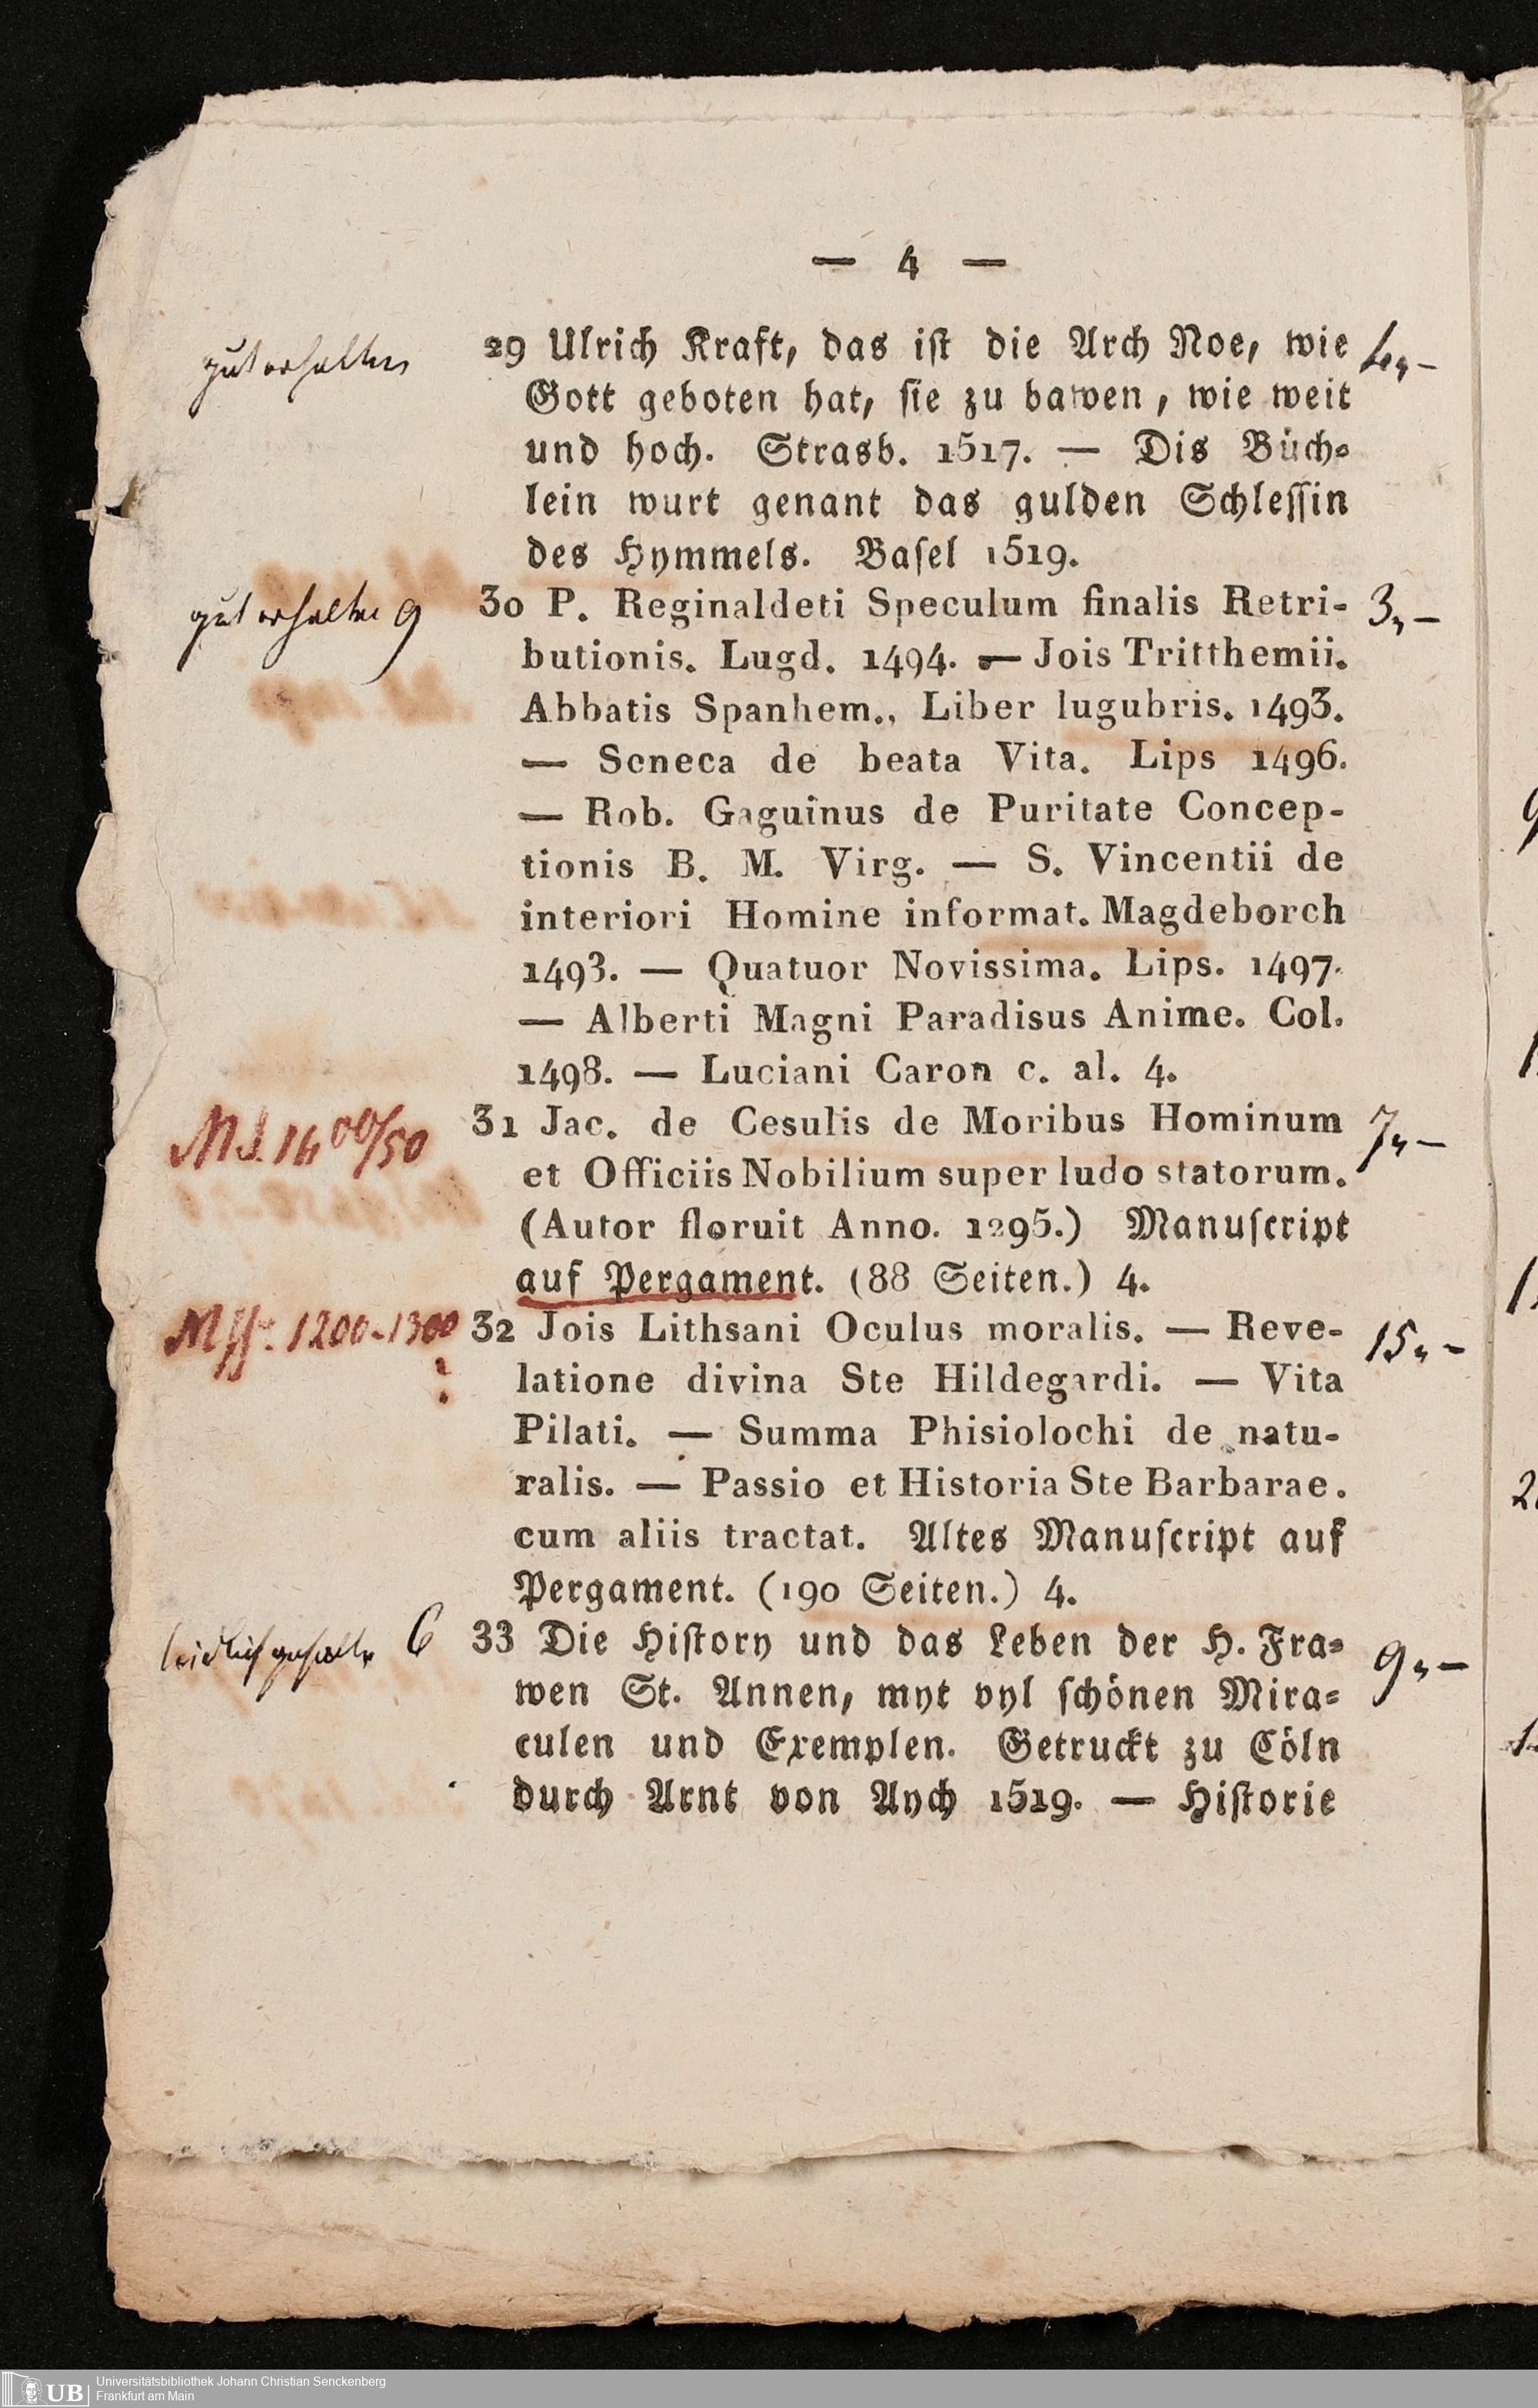 — 4 —
gut erhalten
29 Ulrich Kraft, das iſt die Arch Noe, wie
4,, –
Gott geboten hat, ſie zu bawen, wie weit
und hoch. Strasb. 1517. — Dis Büch⸗
lein wurt genant das gulden Schleſſin
des Hymmels. Baſel 1519.
gut erhalten 9
30 P. Reginaldeti Speculum finalis Retri-
3,, –
butionis. Lugd. 1494. — Jois Tritthemii.
Abbatis Spanhem., Liber lugubris. 1493.
— Seneca de beata Vita. Lips 1496.
— Rob. Gaguinus de Puritate Concep-
tionis B. M. Virg. — S. Vincentii de
interiori Homine informat. Magdeborch
1493. — Quatuor Novissima. Lips. 1497.
— Alberti Magni Paradisus Anime. Col.
1498. — Luciani Caron c. al. 4.
MS. 1400/50
31 Jac. de Cesulis de Moribus Hominum
7,, –
et Officiis Nobilium super ludo statorum.
(Autor floruit Anno. 1295.) Manuſcript
auf Pergament. (88 Seiten.) 4.
Mſſ. 1200-1300
?
32 Jois Lithsani Oculus moralis. — Reve-
15,, –
latione divina Ste Hildegardi. — Vita
Pilati. — Summa Phisiolochi de natu-
ralis. — Passio et Historia Ste Barbarae.
cum aliis tractat. Altes Manuſcript auf
Pergament. (190 Seiten.) 4.
6
33 Die Hiſtory und das Leben der H. Fra⸗
9,, –
wen St. Annen, myt vyl ſchönen Mira⸗
culen und Exemplen. Getruckt zu Cöln
durch Arnt von Aych 1519. — Hiſtorie
UB
Universitätsbibliothek Johann Christian Senckenberg
Frankfurt am Main